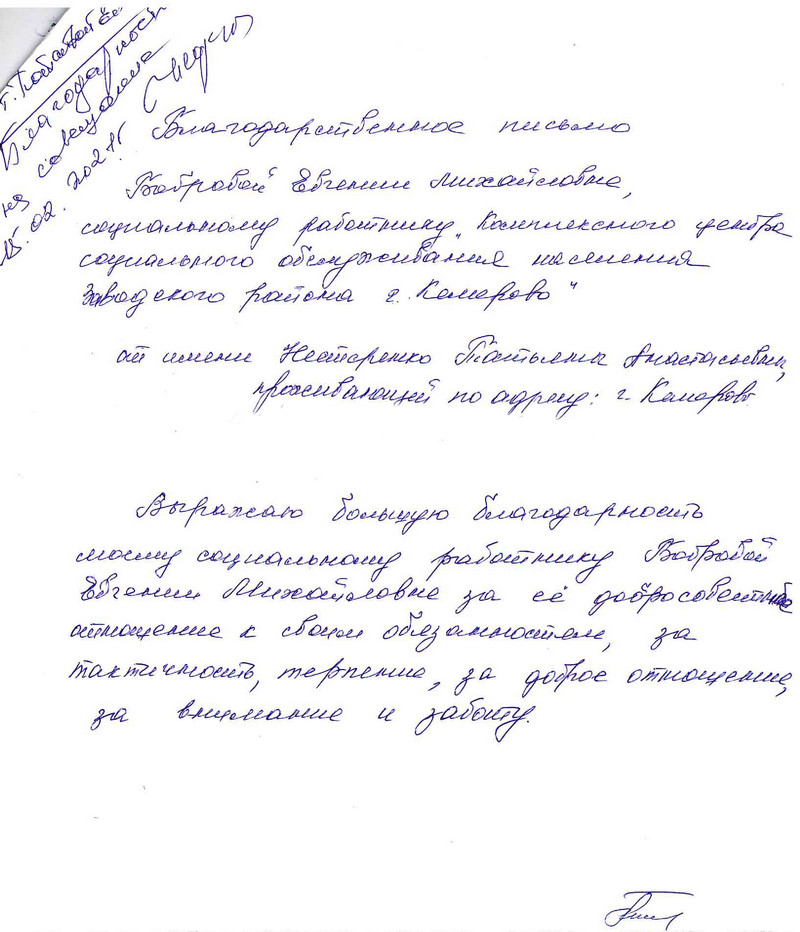 Благодарность
на совещание
15.02.2021г.
Благодарственное письмо
Бобровой Евгении Михайловне,
социальному работнику „Комплексного центра
социального обслуживания населения
Заводского района г. Кемерово"
от имени Нестеренко Татьяны Анастасьевны,
проживающей по адресу: г. Кемерово
Выражаю большую благодарность
моему социальному работнику Бобровой
Евгении Михайловне за её добросовестное
отношение к своим обязанностям, за
тактичность, терпение, за доброе отношение,
за внимание и заботу.